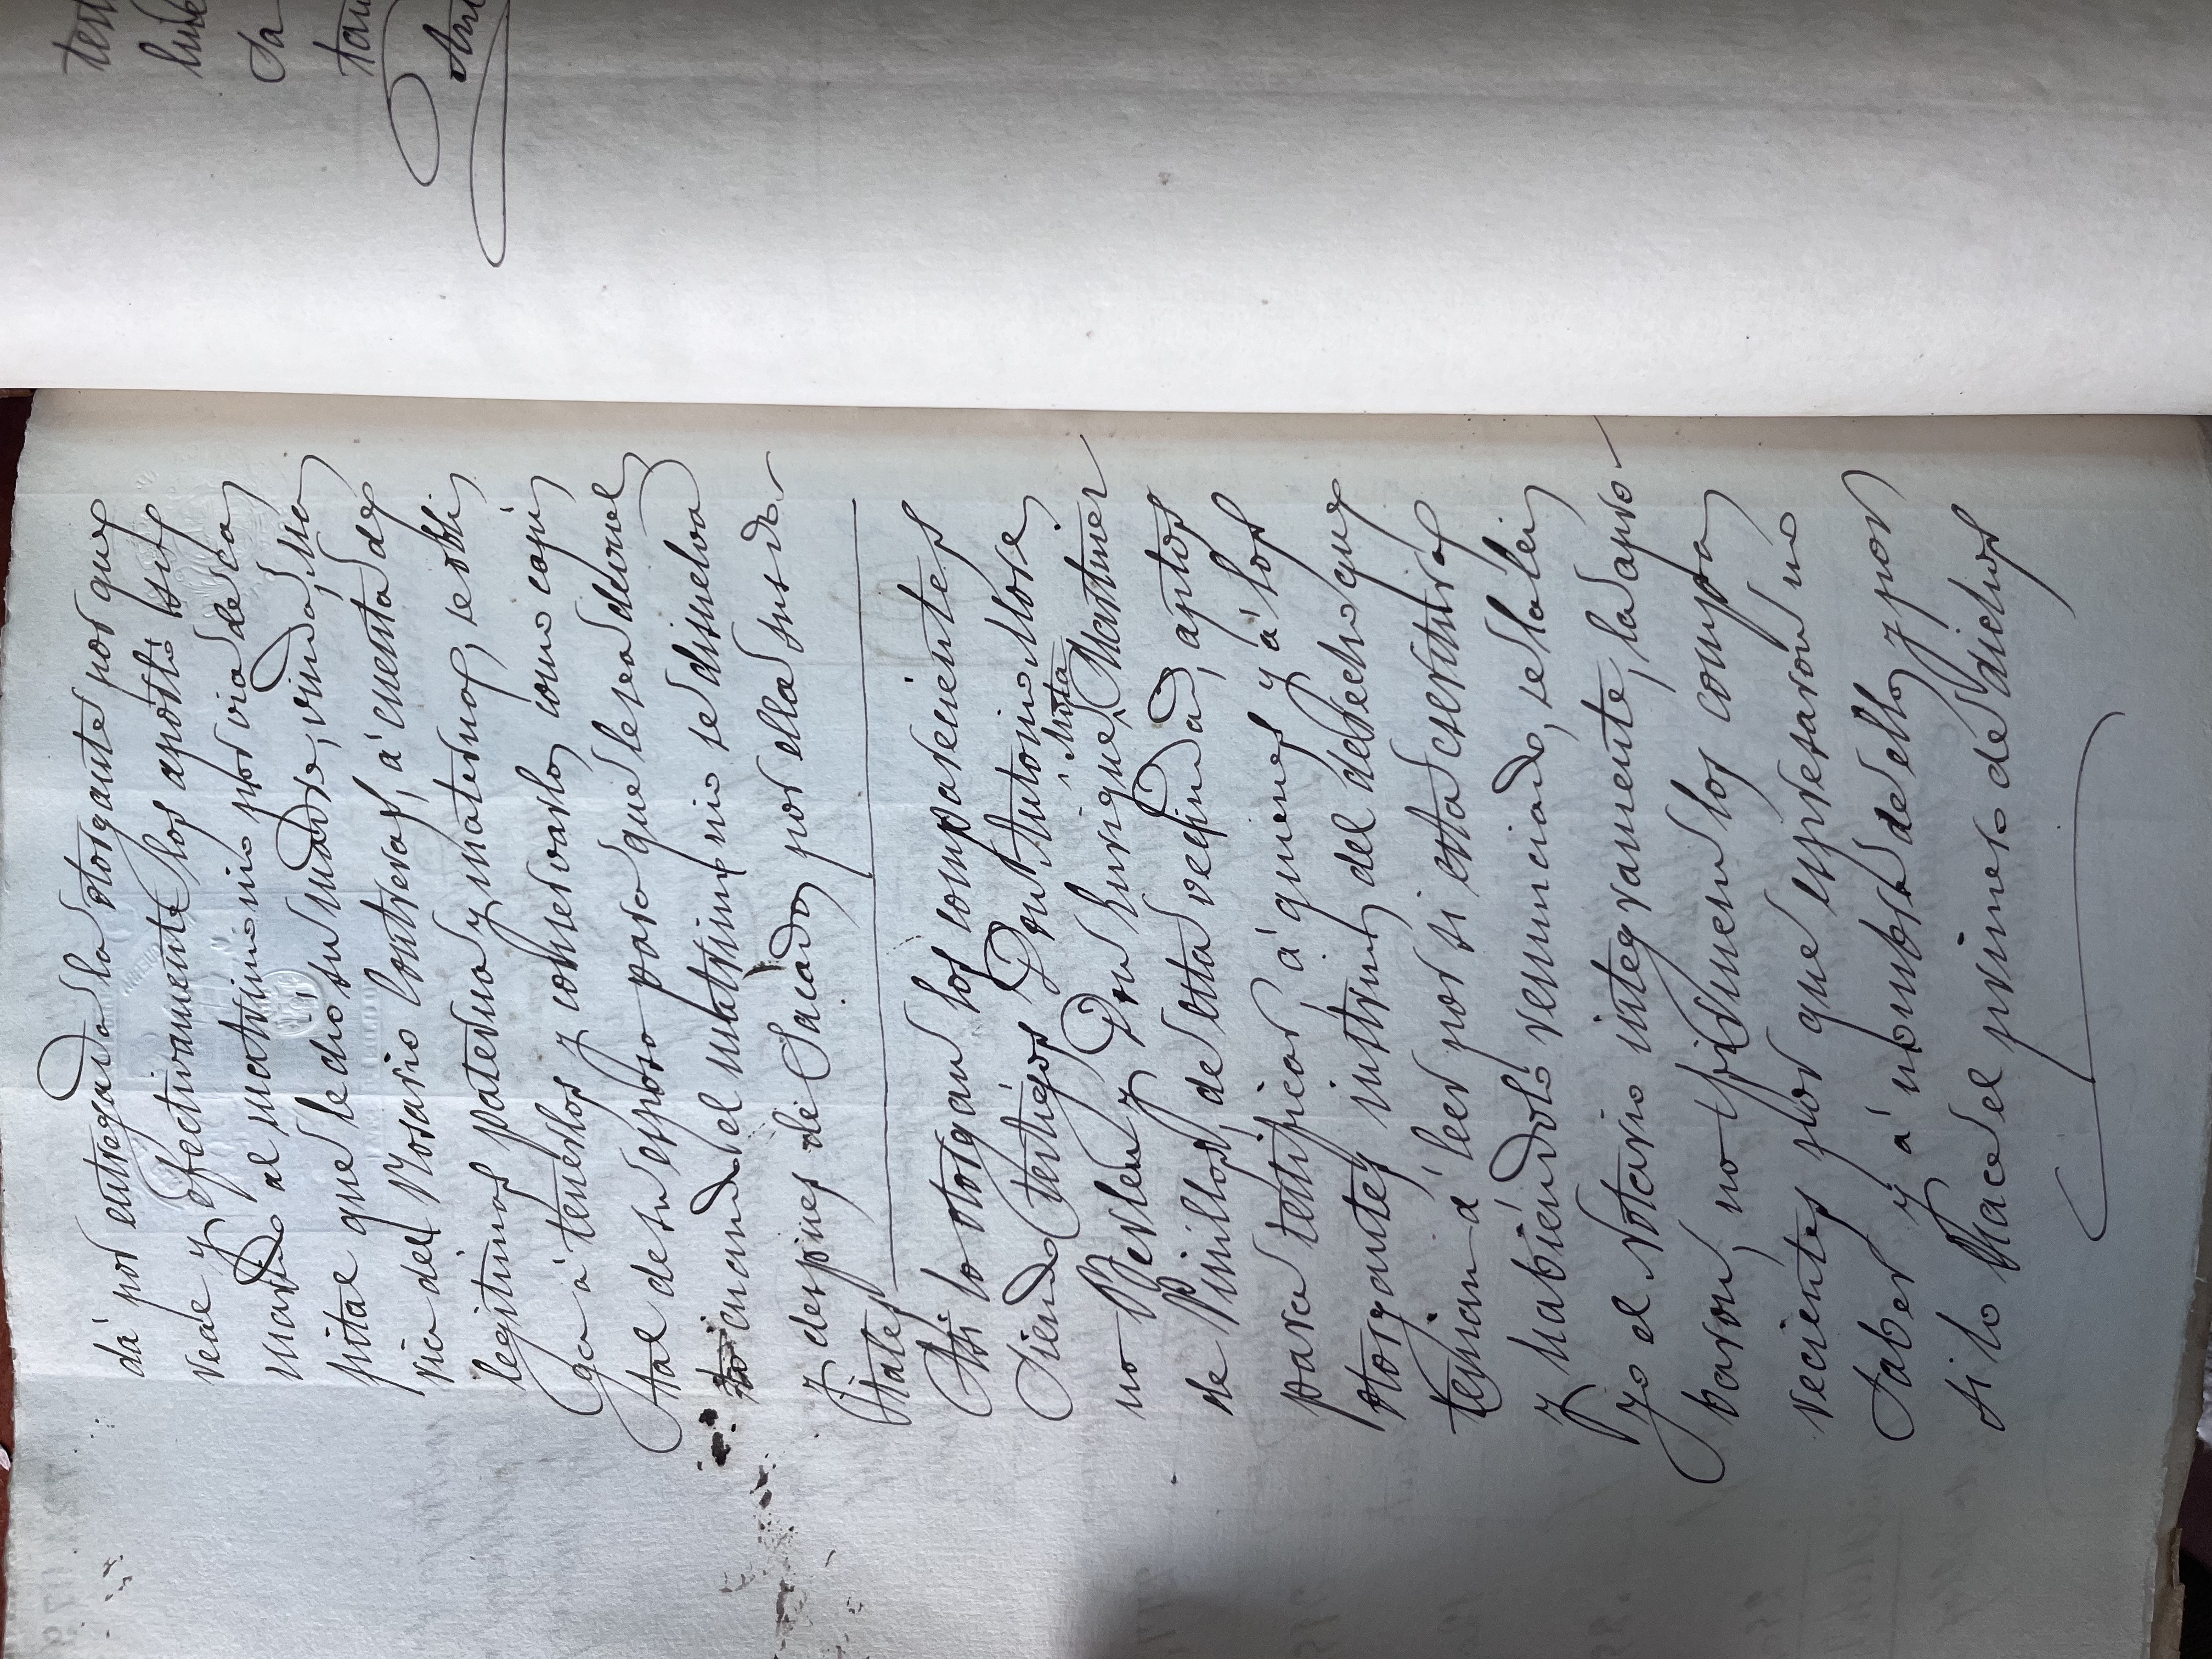 dá por entregado la otorgante por que
real y efectivamente los aportó su
marido al matrimonio por via de ca
pital que le dió su madre, viuda, Ma
ria del Rosario Contreras, á cuenta de
legitimas paterna y materna, se obli
ga á tenerlos y conservarlos como capi
tal de su esposo para que le sea devuel
to cuando el matrimonio se disuelva
y despues de sacados por ella sus do
tales
Asi lo otorgan los comparecientes
siendo testigos Don Antonino More
no Perlen y Don Enrique Mota Martinez
de Pinillos, de esta vecindad, aptos
para testificar á quienes y á los
otorgantes instrui del derecho que
tenian á leer por si esta escritura
y habiéndolo renunciado, se la lei
yo el Notario integramente, la apro
baron, no firmen los compa
recientes por que espresaron no
saber y á nombre de ellos y por
si lo hace el primero de dichos
tes
Sa